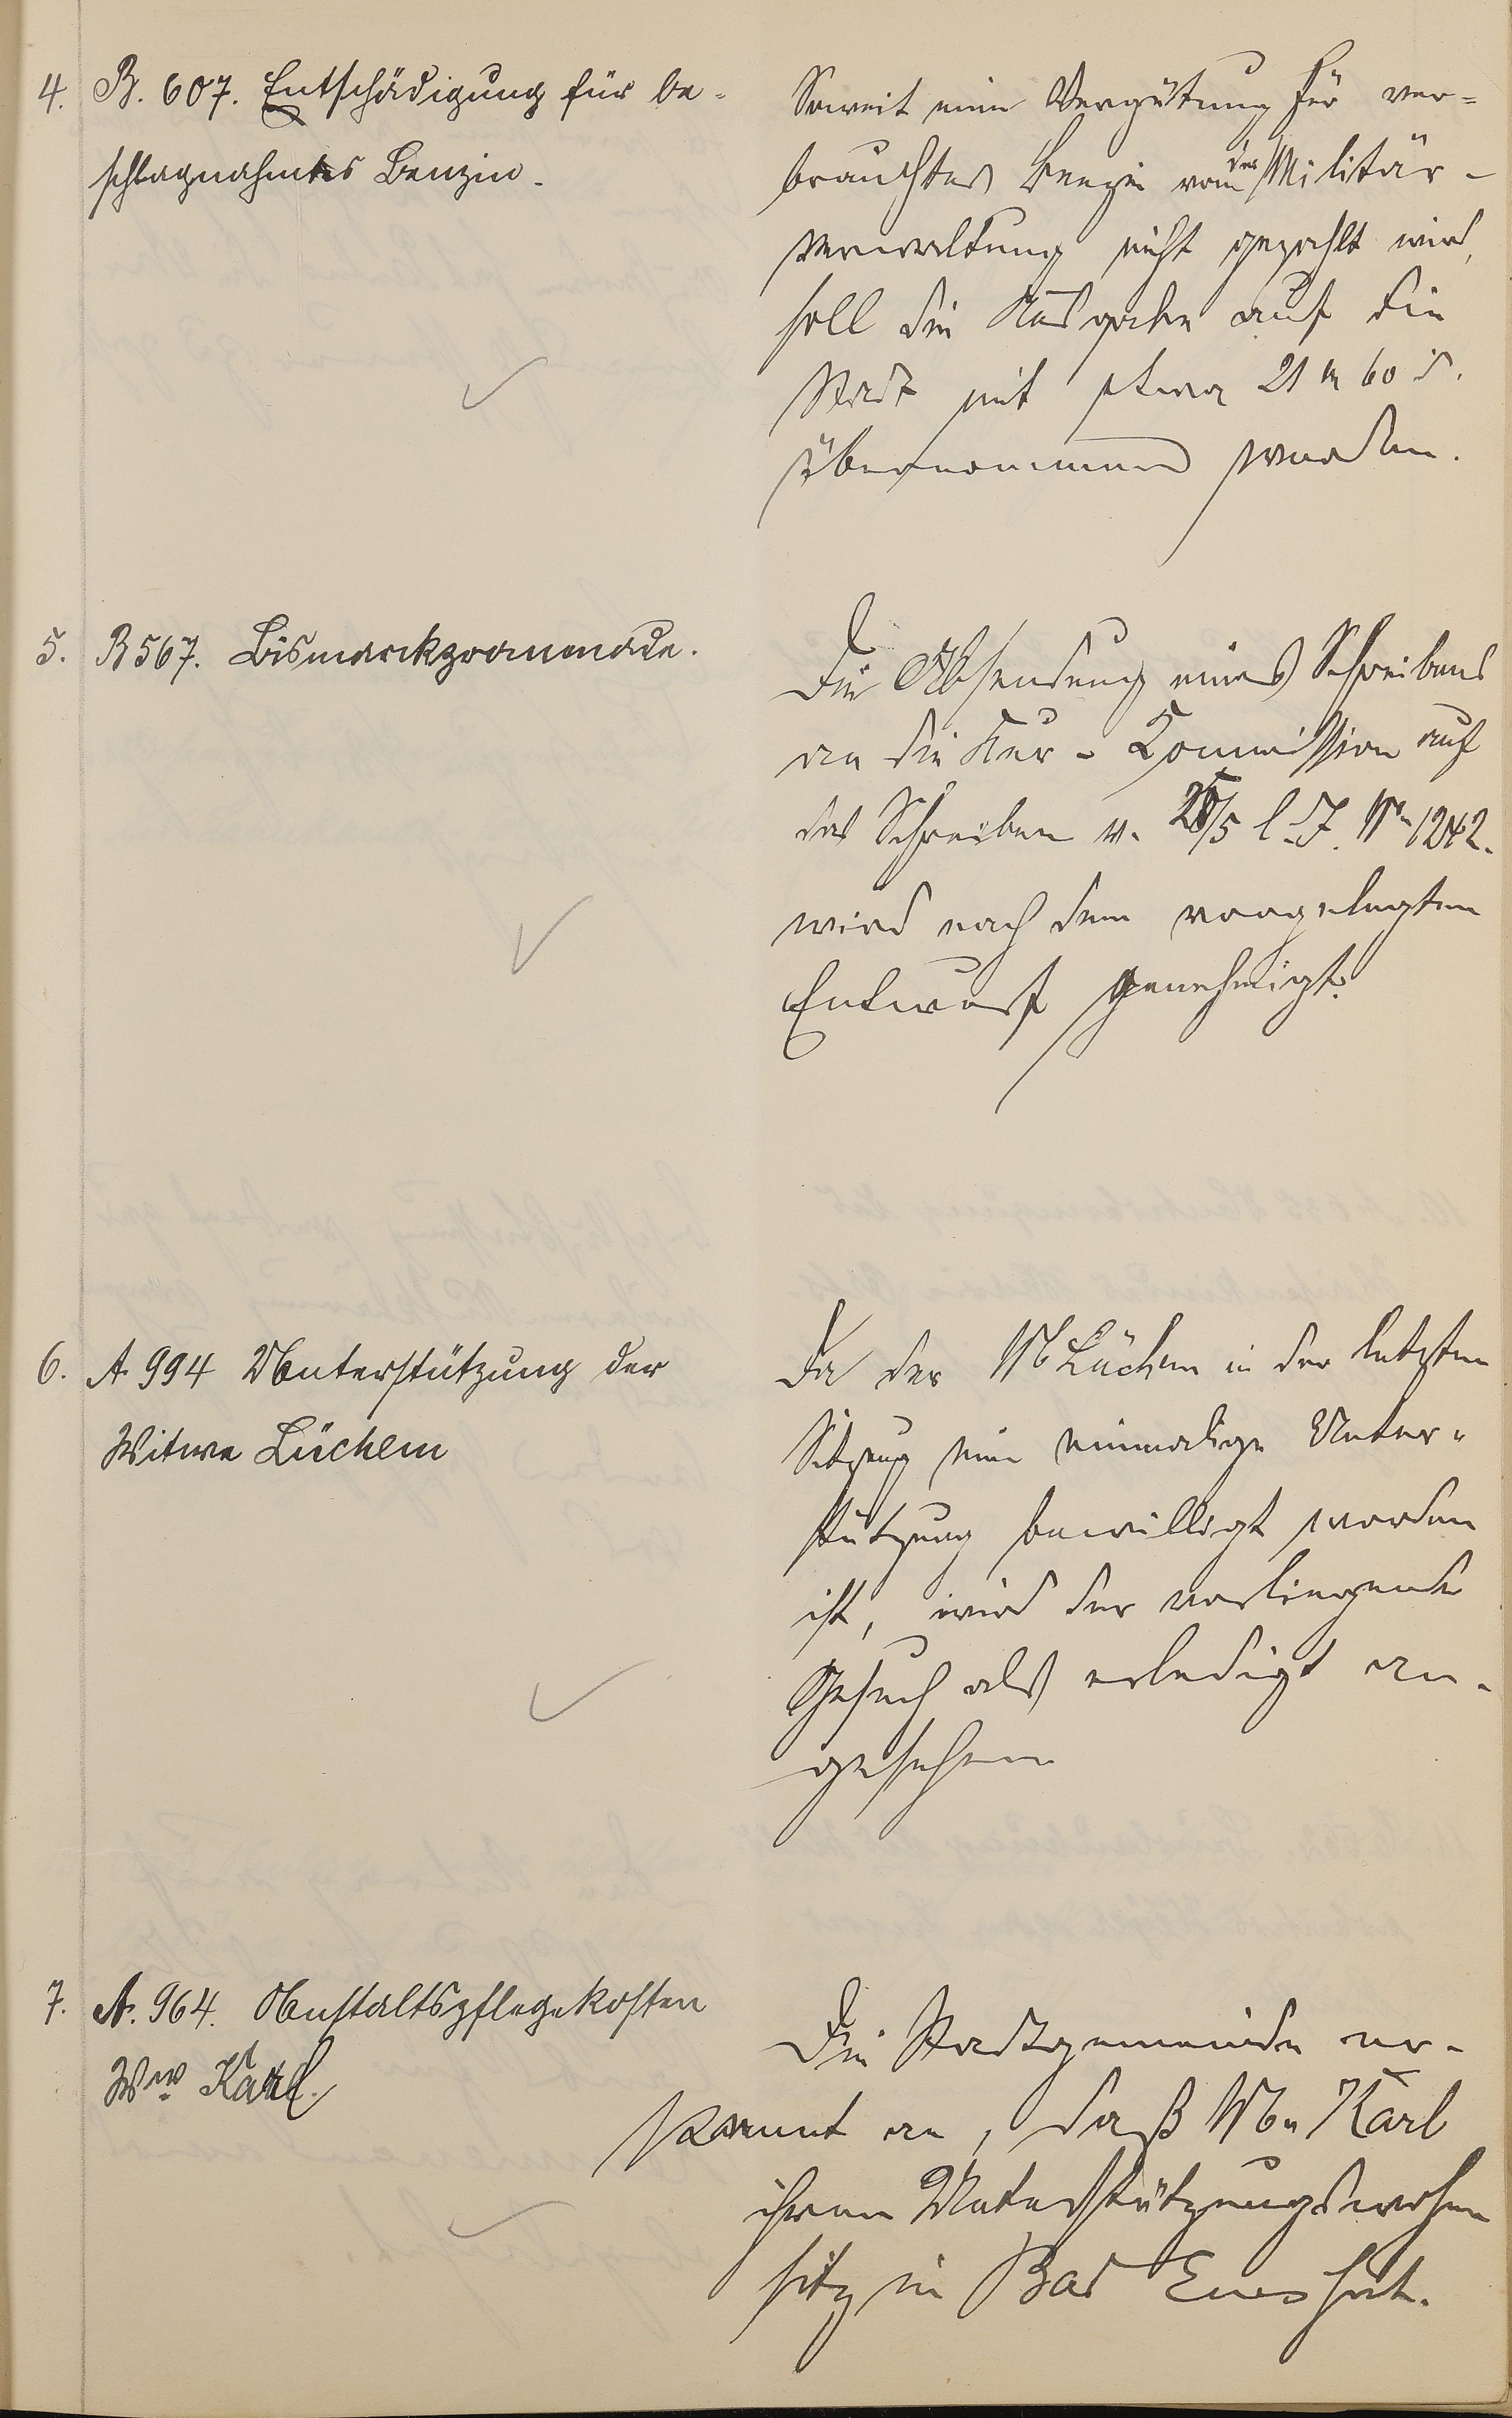 4. B. 607. Entschädigung für be-
schlagnahmtes Benzin.
Soweit eine Vergütung für ver=
brauchtes Benzin von der Militär-
verwaltung nicht gezahlt wird,
soll die Ausgabe auf die
Stadt mit etwa 21 M 60 ₰.
übernommen werden.
5. B 567. Bismarckpromenade.
Die Absendung eines Schreibens
an die Kur-Kommission auf
das Schreiben v. /5 l. J. No 1242.
wird nach dem vorgelegten
Entwurf genehmigt.
6. A 994 Unterstützung der
Witwe Lüchem
Da der W Lüchem in der letzten
Sitzung eine einmalige Unter-
stützung bewilligt worden
ist, wird das vorliegende
Gesuch als erledigt an-
gesehen
7. A. 964. Anstaltspflegekosten
Ww Karl.
Die Stadtgemeinde er-
kennt an, daß Ww Karl
ihren Unterstützungswohn
sitz in Bad Ems hat.